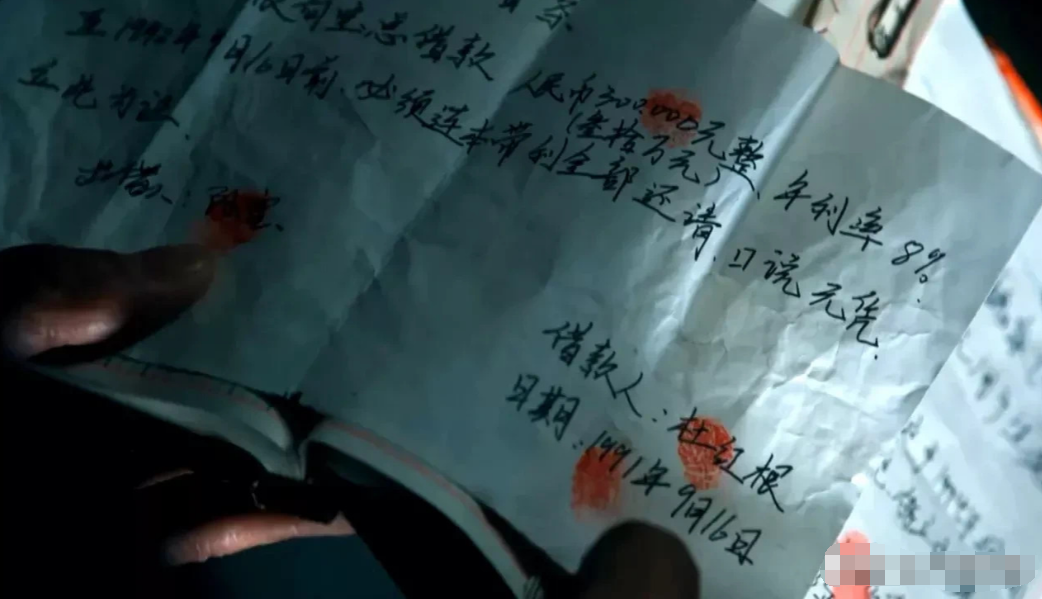 条
司生总借款 人民币300,000元整、年利率8%.
(叁拾万元)
至1992年9月16日前.必须连本带利全部还请.口说无凭.
立此为证.
出借人:陈宝
借款人:杜红根
日期:1991年9月16日